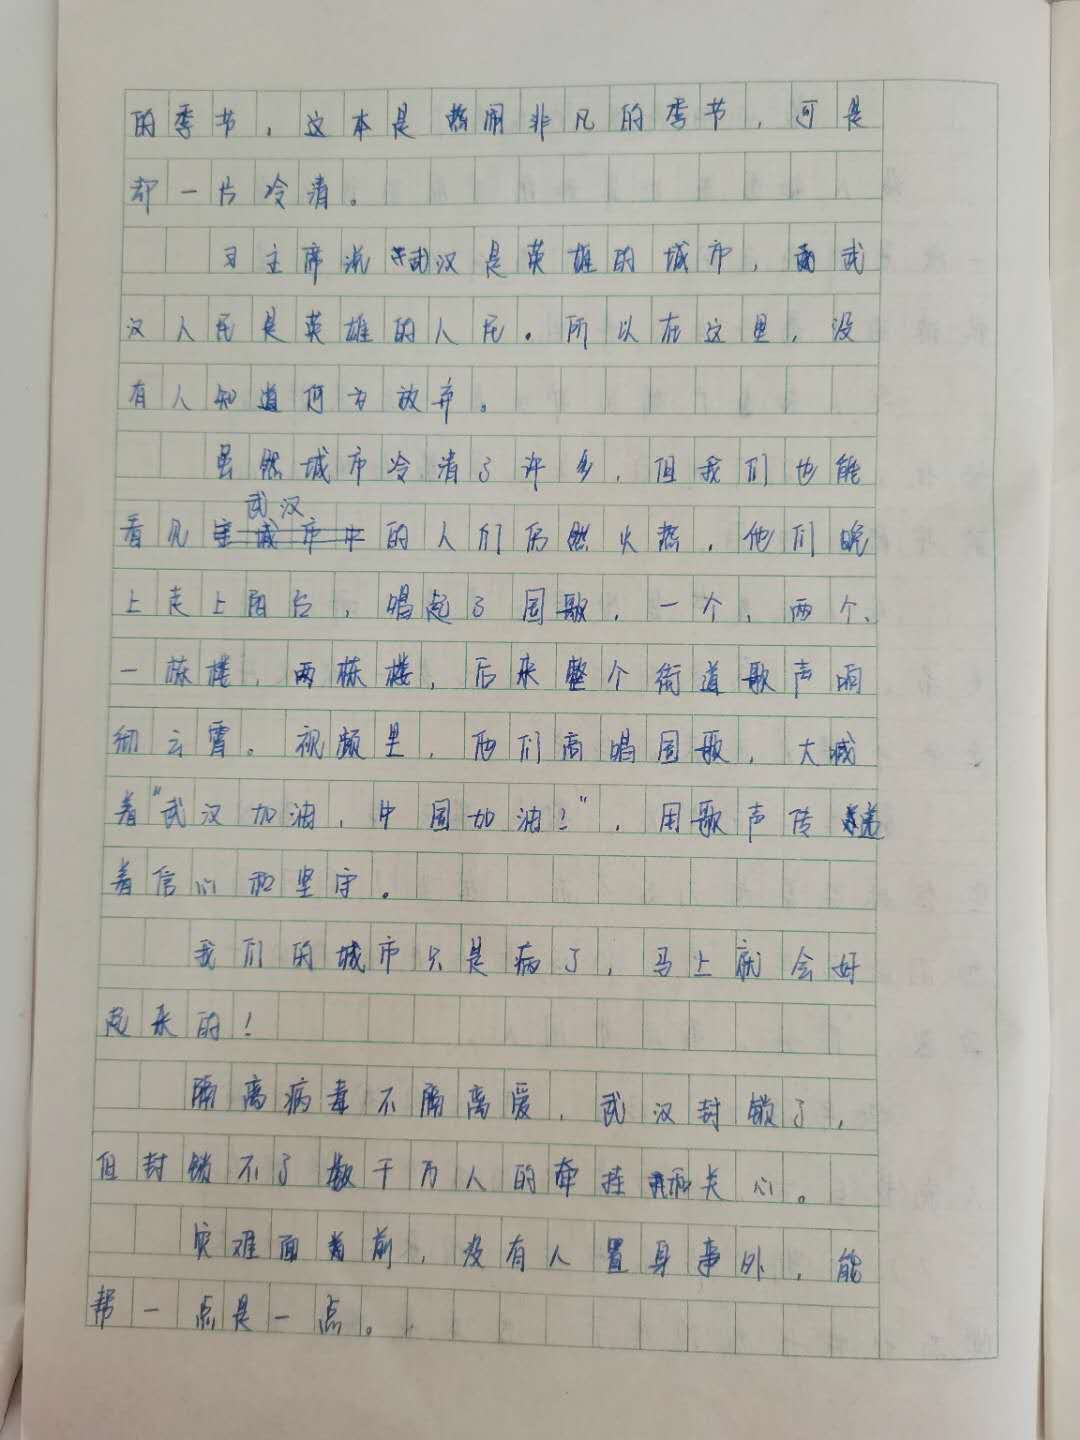 的季节，这本是热闹非凡的季节，可是
却一片冷清。
习主席说武汉是英雄的城市，而武
汉人民是英雄的人民。所以在这里，没
有人知道何为放弃。
虽然城市冷清了许多，但我们也能
武汉
看见城市中的人们仍然火热，他们晚
上走上阳台，唱起了国歌，一个，两个、
一栋楼，两栋楼，后来整个街道歌声响
彻云霄。视频里，他们高唱国歌，大喊
着"武汉加油，中国加油！"，用歌声传递
着信心和坚守。
我们的城市只是病了，马上就会好
起来的！
隔离病毒不隔离爱，武汉封锁了，
但封锁不了数千万人的牵挂和关心。
灾难面前，没有人置身事外，能
帮一点是一点。